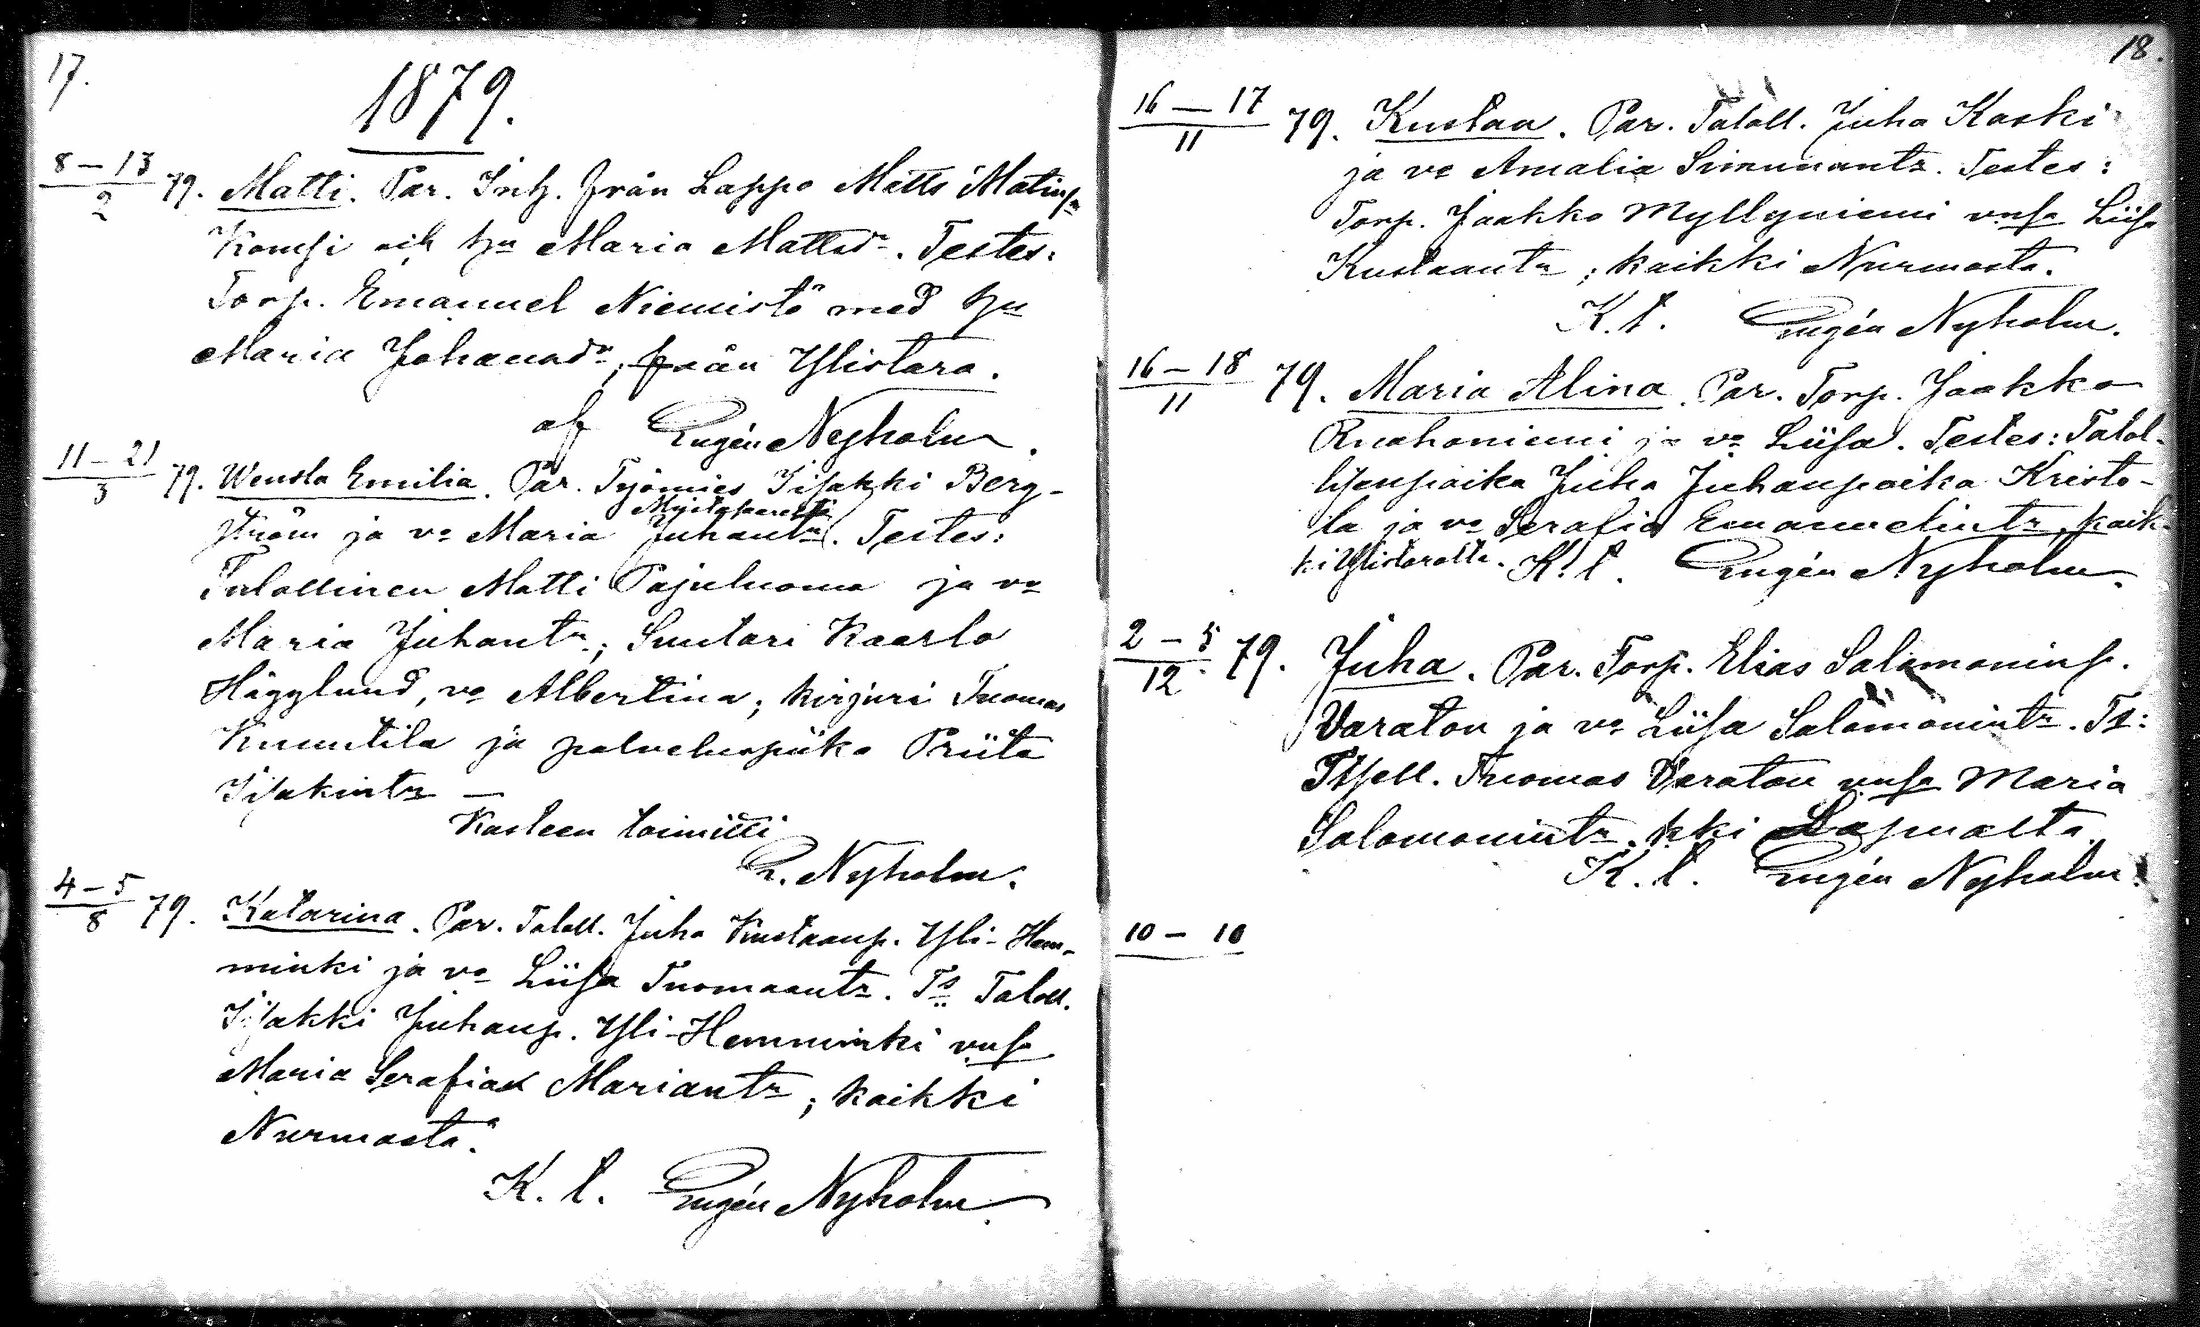 17.
1879.
8 – 13
2
79. Matti. Par. Inh. från Lappo Matts Matinp.
Komsi och hu Maria Mattsdr. Testes:
Torp. Emanuel Niemistö med hu
Maria Johansdr, från Ylistaro.
af Eugén Nyholm.
11 – 21
3
79. Wendla Emilia. Par. Työmies Iisakki Berg-
ström ja vo Maria Juhantr. Testes:
Talollinen Matti Pajuluoma ja vo
Maria Juhantr; Suutari Kaarlo
Hägglund, vo Albertina; kirjuri Tuomas
Knuutila ja palveluspiika Priita
Iisakintr –
Kasteen toimitti
E. Nyholm.
4 – 5
8
79. Katarina. Par. Taloll. Juha Kustaanp. Yli-Hem-
minki ja vo Liisa Tuomaantr. Ts Taloll.
Iisakki Juhanp. Yli-Hemminki vnsa
Maria Serafia Mariantr; kaikki
Nurmosta.
K. t. Eugén Nyholm.
18.
16 – 17
11
79. Kustaa. Par. Taloll. Juha Koski
ja vo Amalia Simunantr. Testes:
Torp. Jaakko Myllyniemi vnsa Liisa
Kustaantr; kaikki Nurmosta.
K. t. Eugén Nyholm.
16 – 18
11
79. Maria Alina. Par. Torp. Jaakko
Ruohoniemi ja vo Liisa. Testes: Talol-
lisenpoika Juha Juhanpoika Kristo-
la ja vo Serafia Emanuelintr, kaik-
ki Ylistarosta. K. t. Eugén Nyholm.
2 – 5
12
79. Juha. Par. Torp. Elias Salomoninp.
Varaton ja vo Liisa Salomonintr. Ts:
Itsell. Tuomas Varaton vnsa Maria
Salomonintr. kki Lapualta.
K. t. Eugén Nyholm.
10 – 10